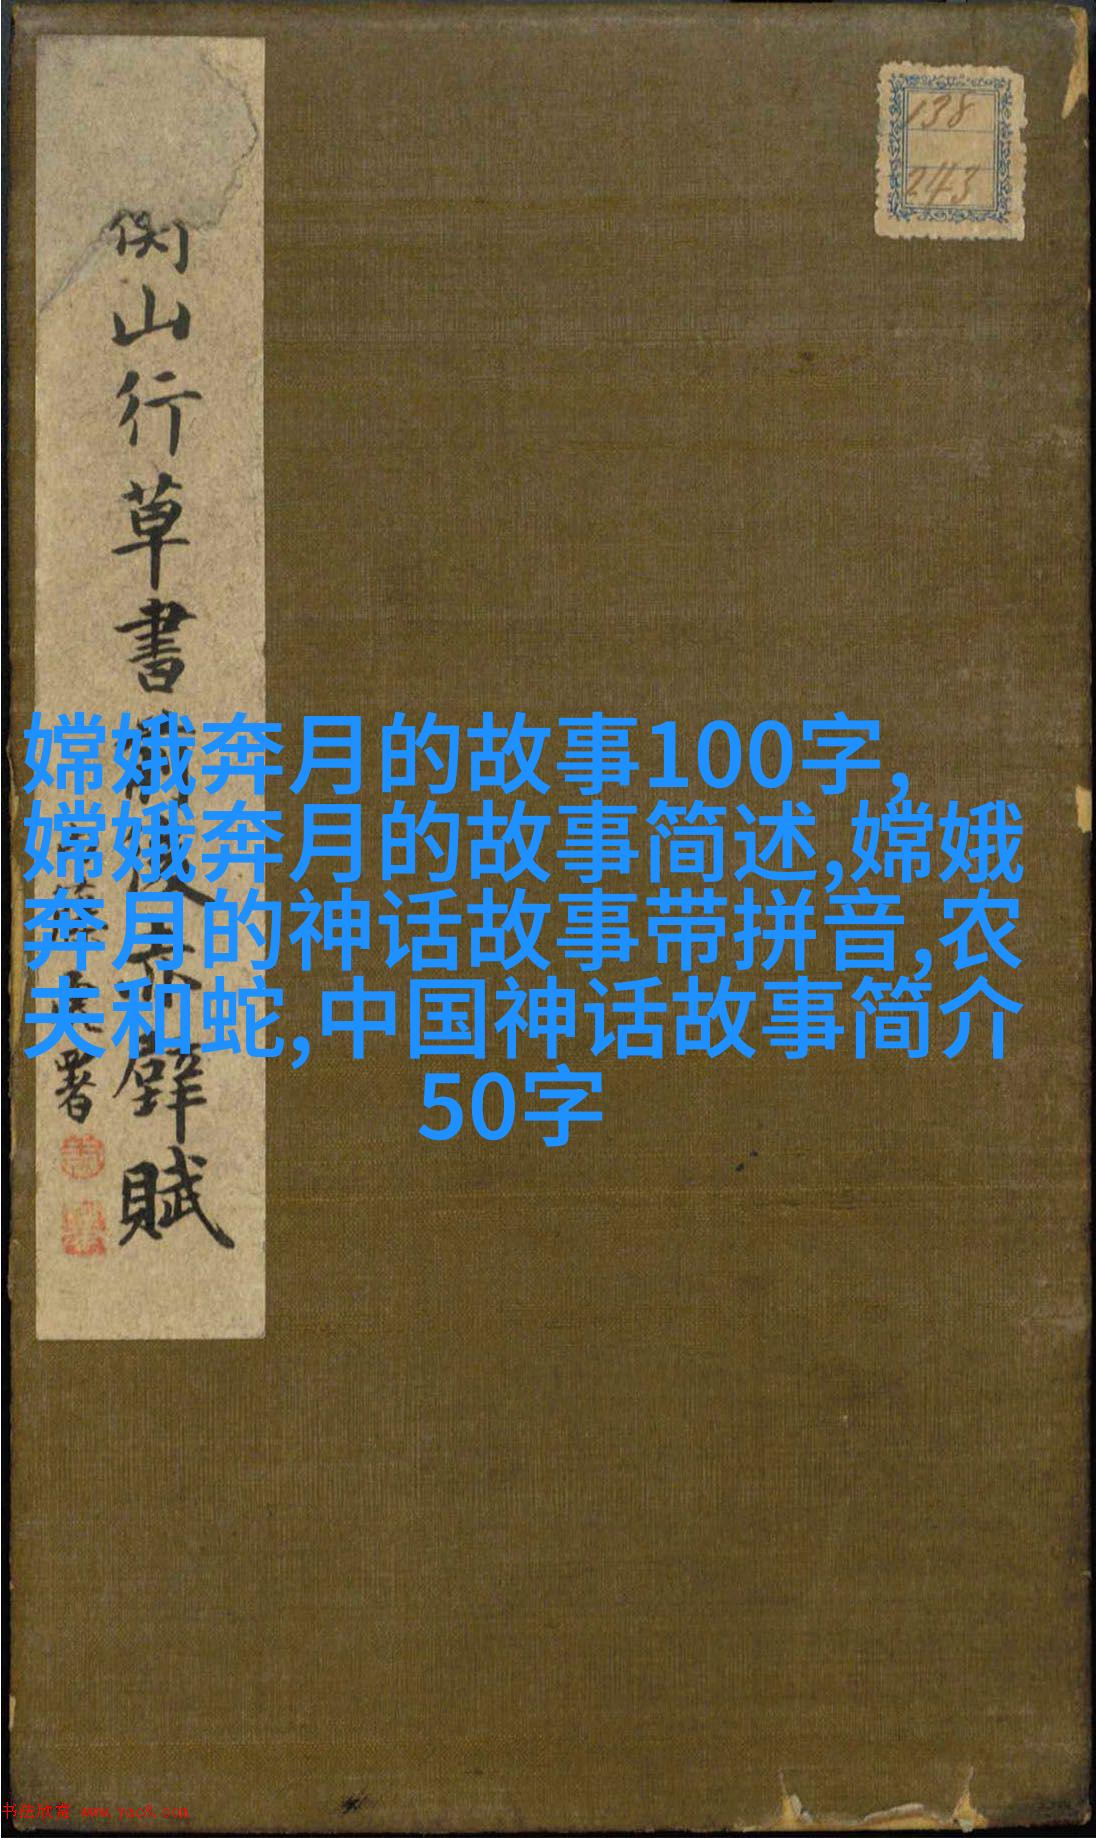 138
243
山行草書
辟賦
署
嫦娥奔月的故事100字,
嫦娥奔月的故事简述,嫦娥
奔月的神话故事带拼音,农
夫和蛇,中国神话故事简介
50字
书法欣赏 www.yac8.com